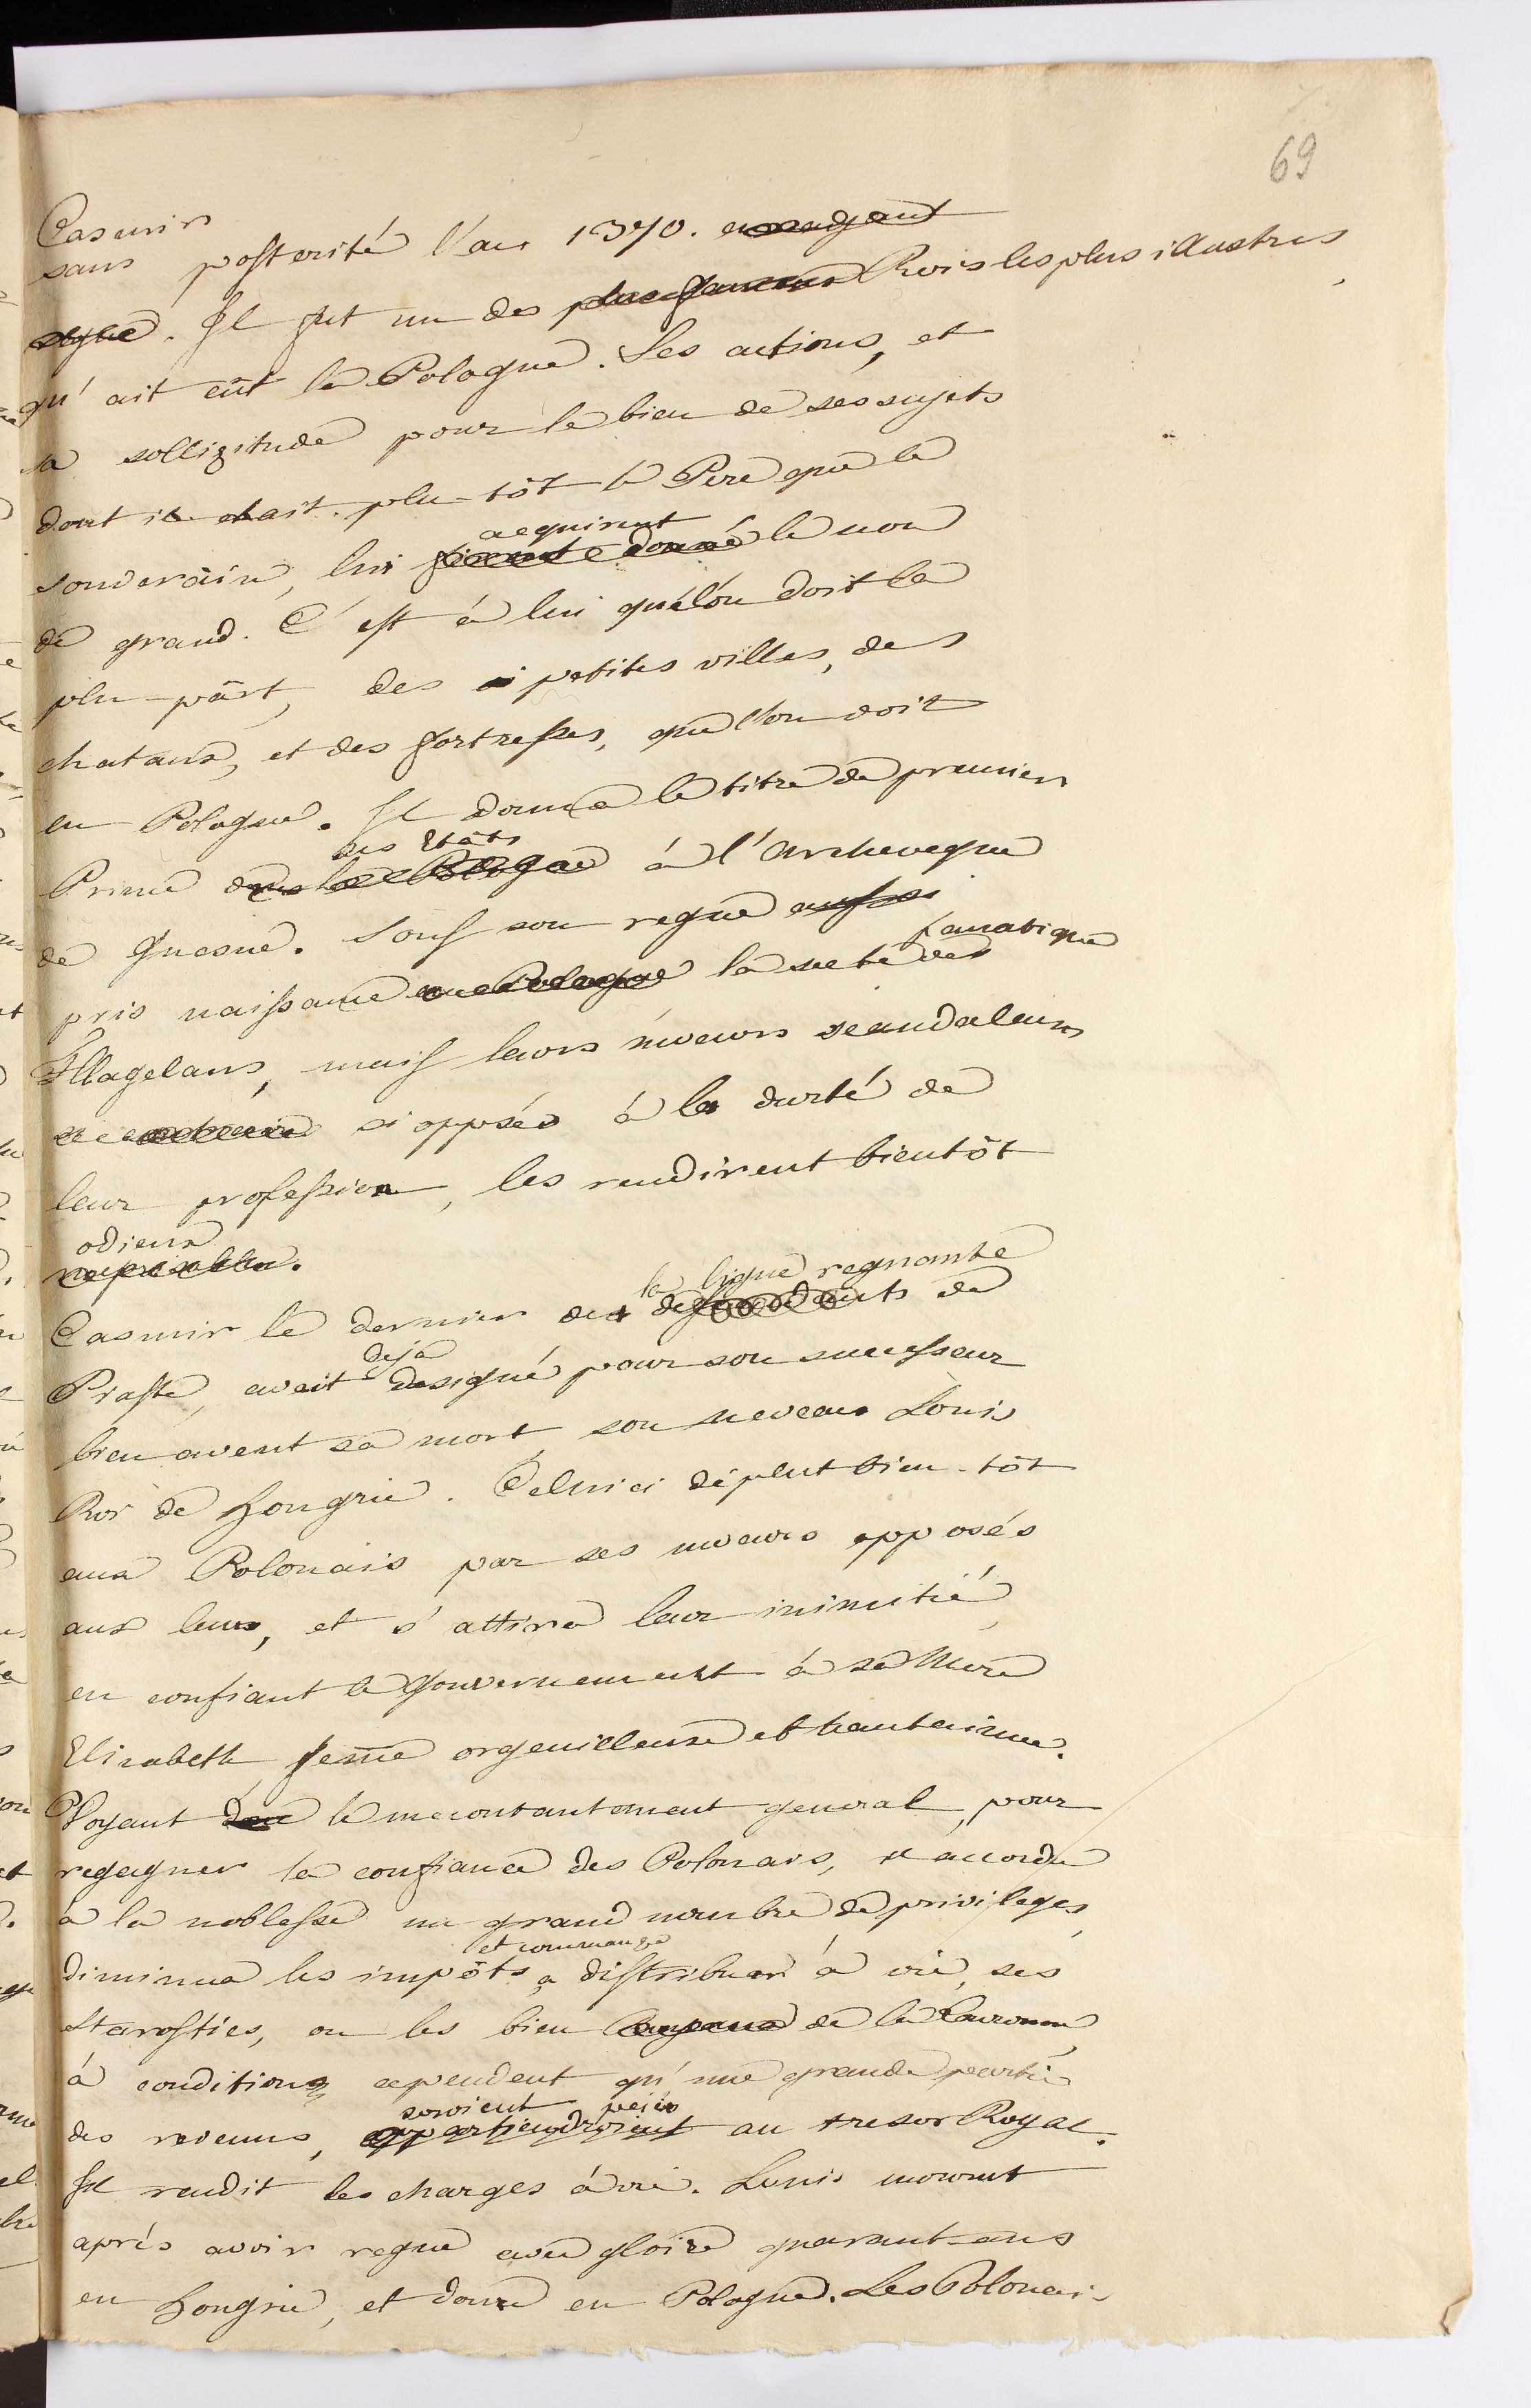 69
Casimir
sans posterité l'an 1370.
Il fut un des Rois les plus illustres
qu'ait eût la Pologne. Ses actions, et
sa sollizitude pour le bien de ses sujets
dont il etait plu-tôt le Pere que le
acquirent
souverain, lui le nom
de grand. C'est à lui que l'on doit la
plu-pârt, des petites villes, des
chataux, et des fortresses, que l'on voit
en Pologne. Il donna le titre de premier
ses Etâts
Prince dans la Pologne à l'Archeveque
de Gnesne. Sous son regne aussi
fanatique
pris naissance en Pologne la secte des
Fllagelans, mais leurs mœurs scandaleux
si opposés à la durté de
leur profession, les rendirent bientôt
odieux
meprisables.
la ligne regnante
Casimir le dernier des dessendants de
deja
Piaste, avait designé pour son successeur
bien avent sa mort son neveau Louis
Roi de Hongrie. Celui ci déplut bien-tôt
aux Polonais par ses mœurs opposés
aux leurs, et s'attira leur inimitié
en confiant le Gouvernement à sa Mere
Elisabeth femme orgeuilleuse et hautainne.
Voyant le mecontantement general, pour
regagner la confiance des Polonais, il accorda
a la noblesse un grand nombre de privileges,
et commança
diminua les impôts a distribuer à vie, ses
starosties, ou les bien de la Couronne
à conditions cependent qu'une grande partie
seroient peiés
des revenus, appartiendroient au tresor Royal.
Il rendit les charges à vie. Louis mourut
aprés avoir regné avec gloire quarant-ans
en Hongrie, et douze en Pologne. Les Polonai-